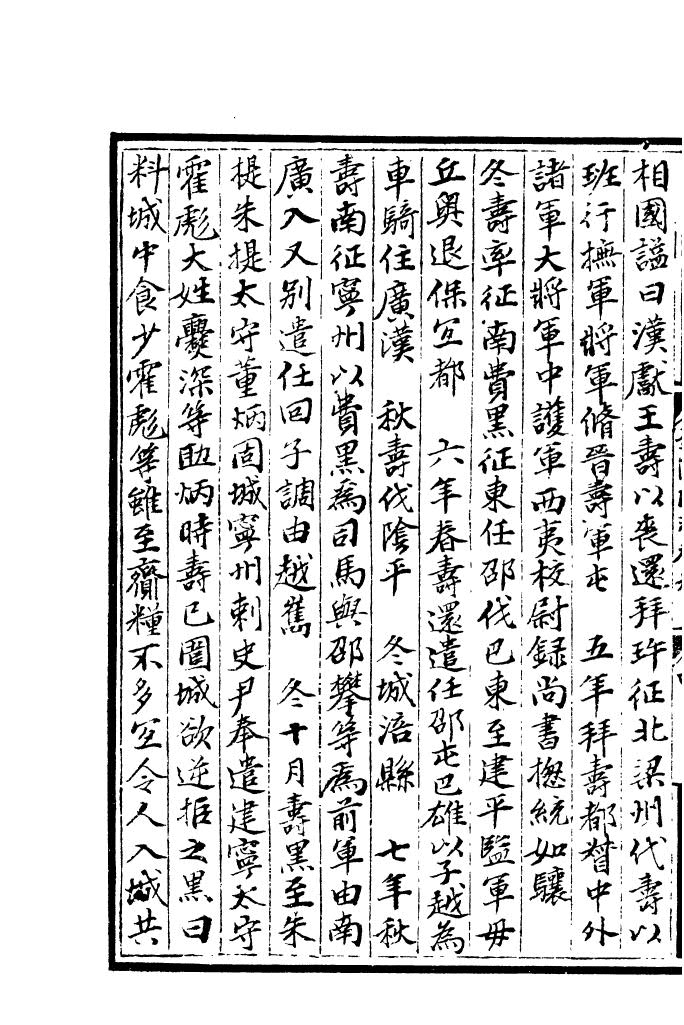 相國謚曰漢獻王壽以喪還拜玝征北梁州代壽以
班行撫軍將軍脩晉壽軍屯　五年拜壽都督中外
諸軍大將軍中護軍西夷校尉録尚書揔統如驤
冬壽率征南費黑征東任邵伐巴東至建平監軍毋
丘興退保冝都　六年春壽還遣任邵屯巴雄以子越為
車騎住廣漢　秋壽伐陰平　冬城涪縣　七年秋
壽南征寧州以費黑爲司馬與邵攀等爲前軍由南
廣入又别遣任回子調由越嶲　冬十月壽黑至朱
提朱提太守董炳固城寧州刺史尹奉遣建寧太守
霍彪大姓爨深等助炳時壽已圍城欲逆拒之黑曰
料城中食少霍彪等雖至齎糧不多冝令人入城共